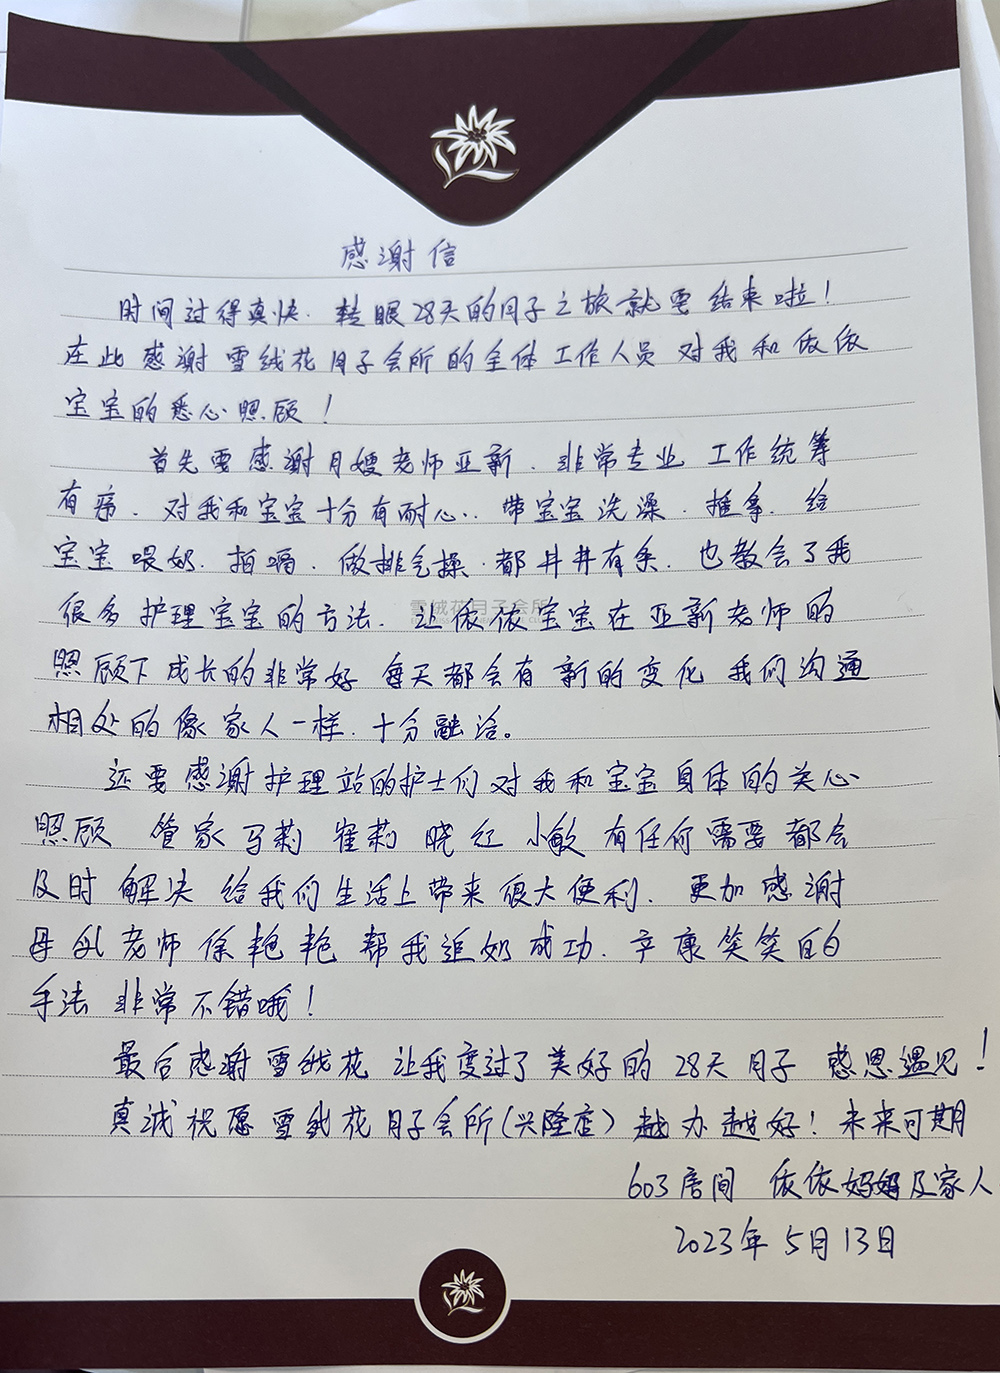 感谢信
时间过得真快.转眼28天的月子之旅就要结束啦!
在此感谢雪绒花月子会所的全体工作人员对我和依依
宝宝的悉心照顾!
首先要感谢月嫂老师亚新.非常专业 工作统筹
有序.对我和宝宝十分有耐心..带宝宝洗澡.推拿.给
宝宝喂奶.拍嗝.做排气操.都井井有条.也教会了我
很多护理宝宝的方法.让依依宝宝在亚新老师的
雪绒花月子会所
照顾下成长的非常好 每天都会有新的变化 我们沟通
相处的像家人一样.十分融洽。
还要感谢护理站的护士们对我和宝宝身体的关心
照顾 管家马莉 崔莉 晓红 小敏 有任何需要都会
及时解决 给我们生活上带来很大便利.更加感谢
母乳老师徐艳艳帮我追奶成功.辛康笑笑的
手法非常不错哦!
最后感谢雪绒花 让我度过了美好的28天月子 感恩遇见!
真诚祝愿雪绒花月子会所(兴隆店)越办越好!未来可期
603房间 依依妈妈及家人
2023年5月13日